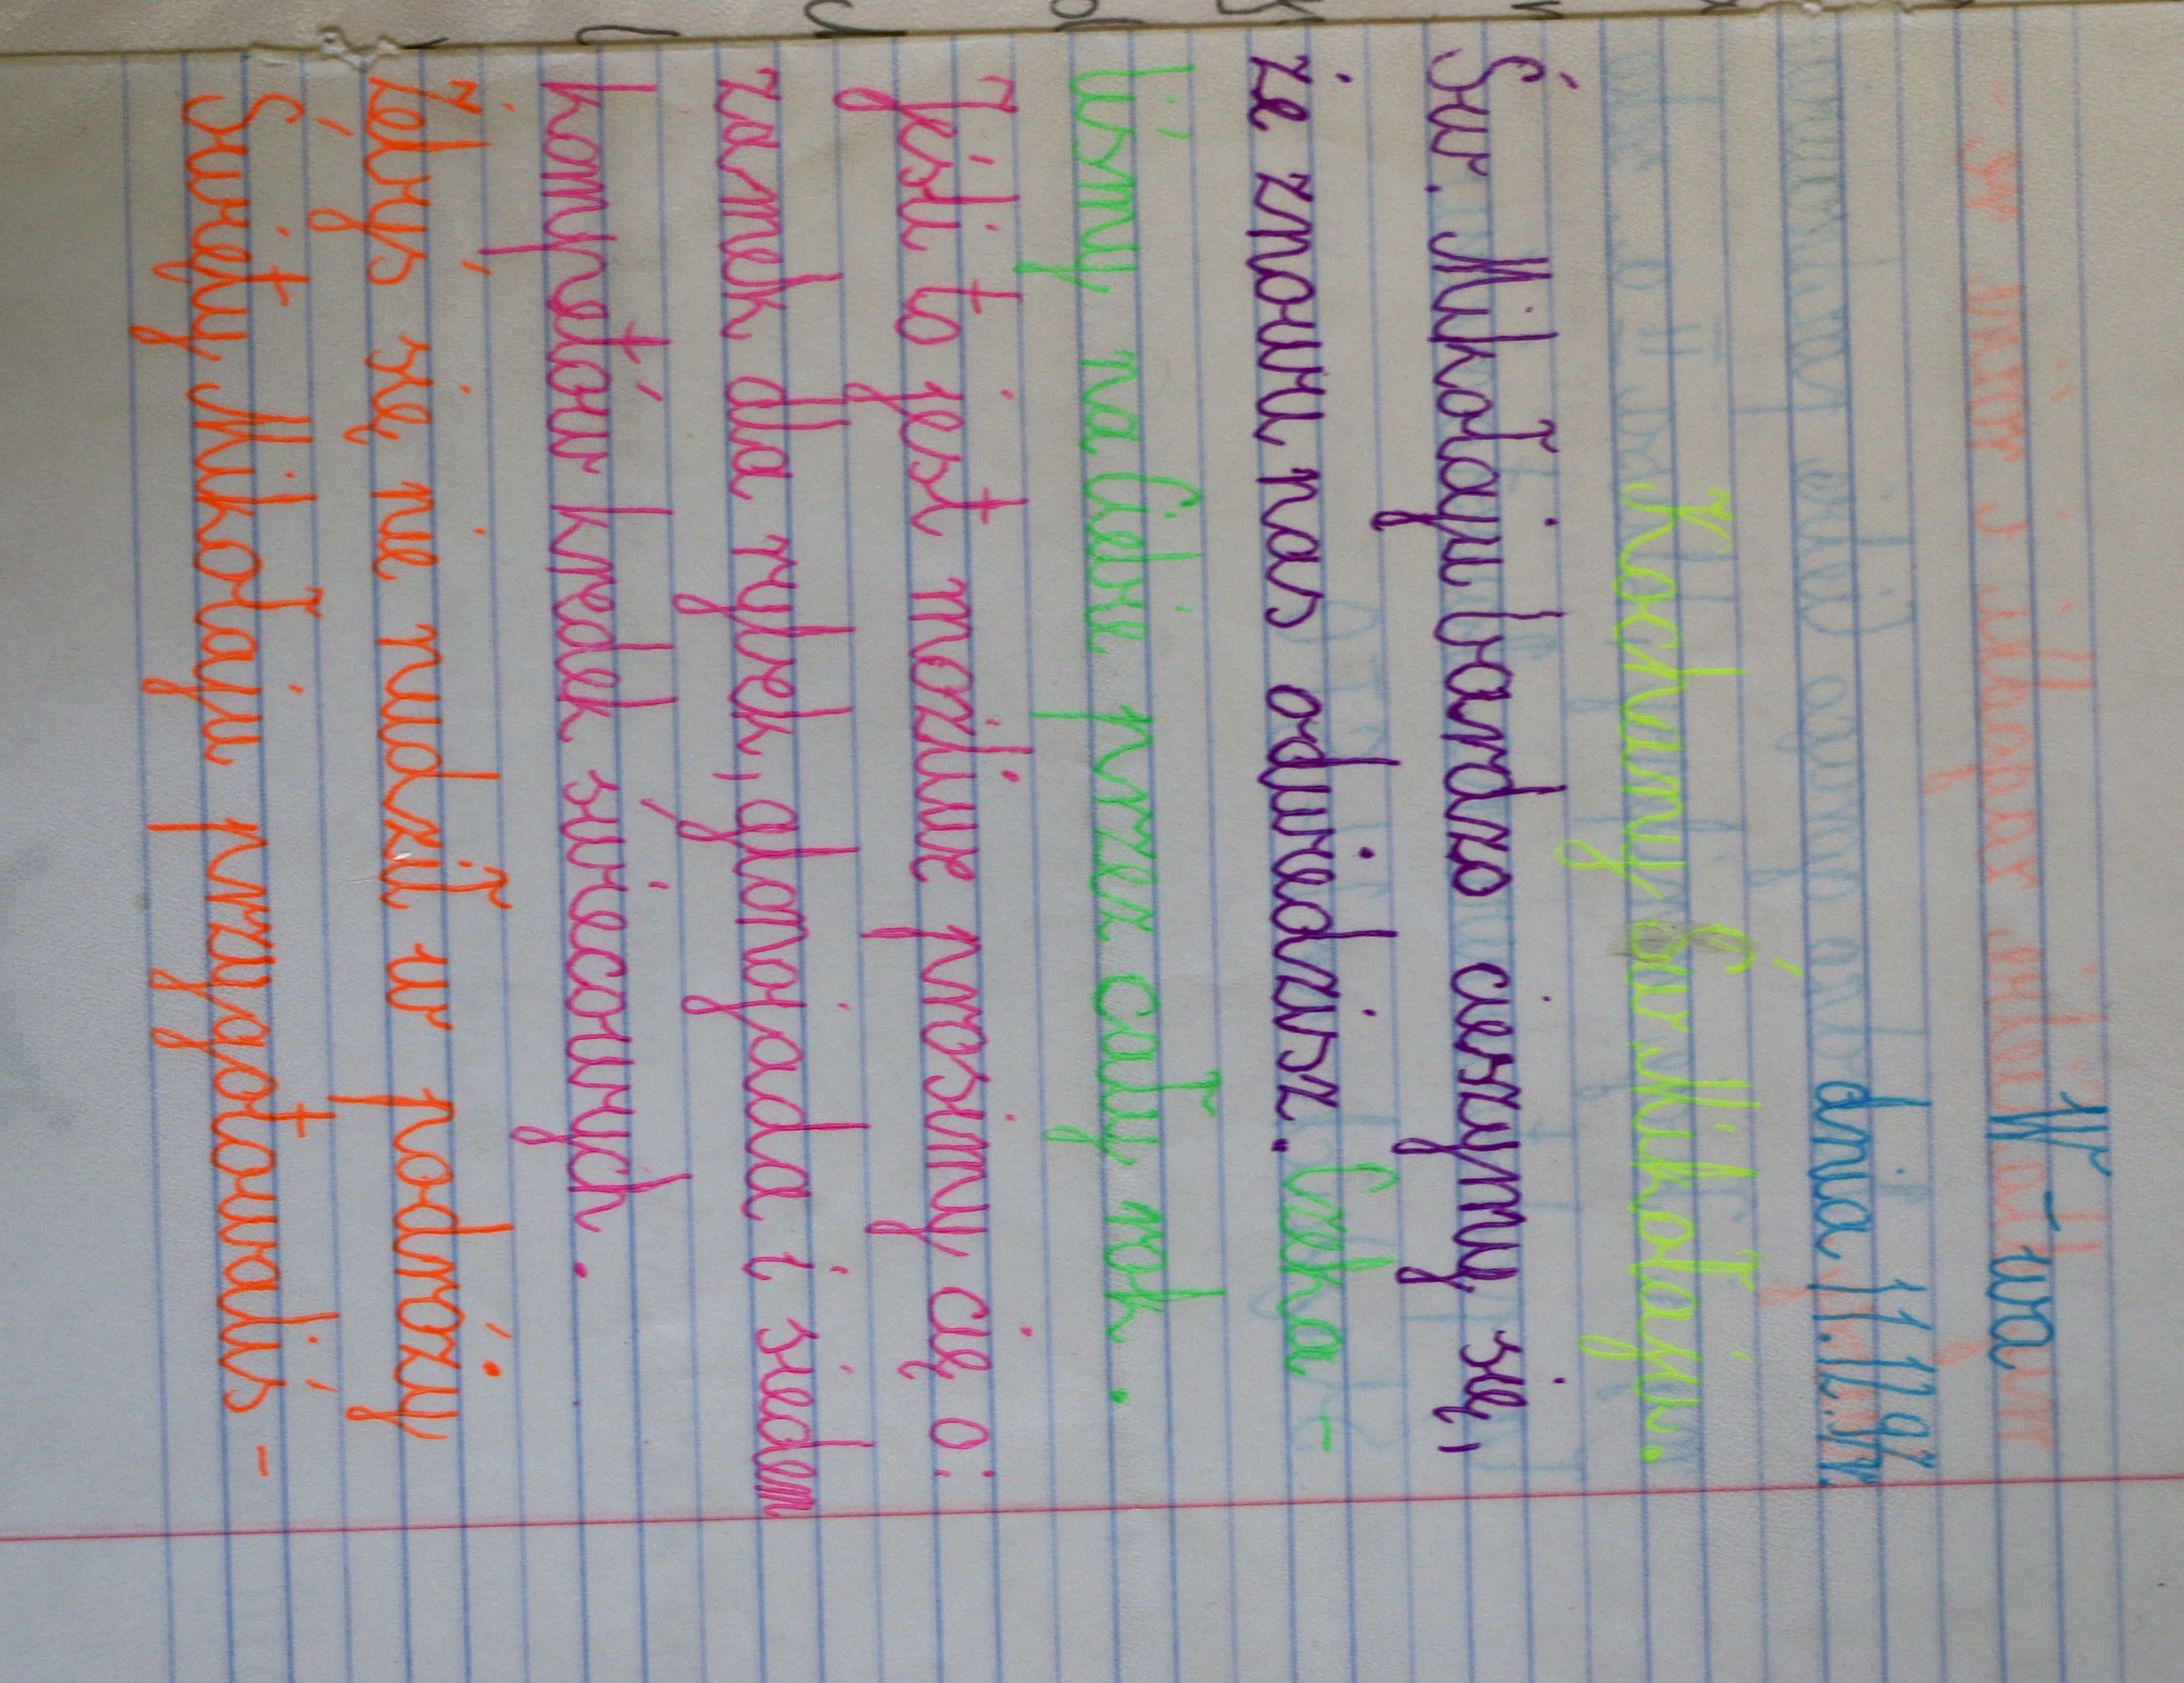 W-wa
dnia 11.12.91r.
Kochany Św Mikołaju.
Św. Mikołaju bardzo cieszymy się,
że znowu nas odwiedzisz. Czeka-
liśmy na Ciebie przez cały rok.
Jeśli to jest możliwe prosimy cię o:
zamek dla rybek, glonojada i siedem
kompletów kredek świecowych.
Żebyś się nie nudził w podróży
Święty Mikołaju przygotowaliś-